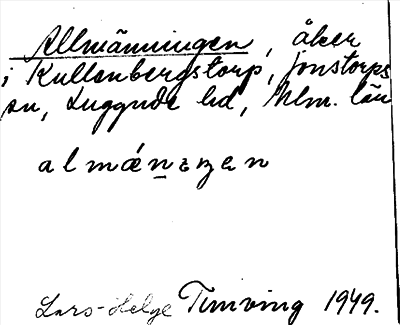 Allmänningen, åker
i Kullenbergstorp, Jonstorps
sn, Luggude hd, Mlm. län
Lars-Helge Timving 1949.